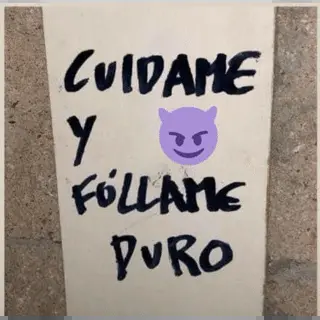 CUIDAME
Y
FÓLLAME
DURO